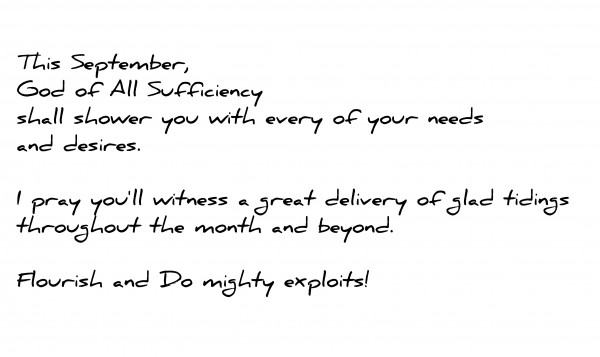 This September,
God of All Sufficiency
shall shower you with every of your needs
and desires.
I pray you'll witness a great delivery of glad tidings
throughout the month and beyond.
Flourish and Do mighty exploits!